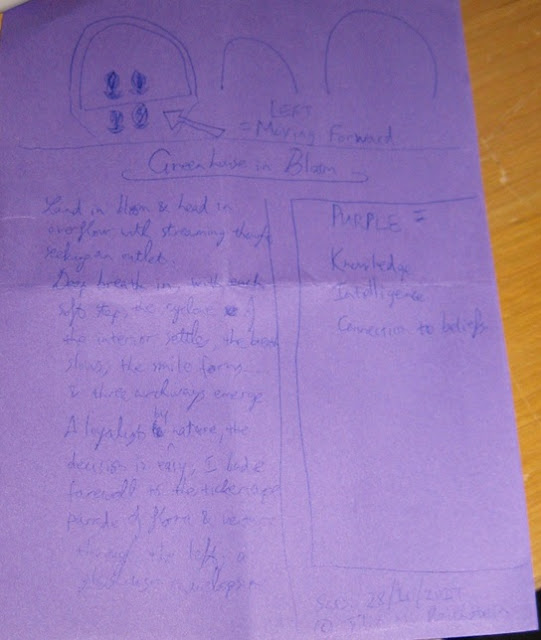 LEFT
= Moving Forward
Greenhouse in Bloom
hand in & head in
overflow with streaming
seeking an outlet.
Deep breath in, with each
soft step, the cyclone of
the interior settles, the beat
slows, the smile forms
& three archways emerge
A loyalist by nature, the
decision is easy, I bade
farewell to the tickertape
parade of flora &
through the left, a
PURPLE =
Knowledge
Intelligence
Connection to beliefs